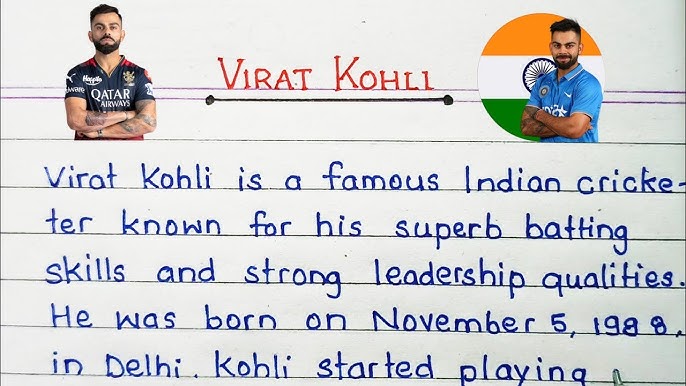 VIRAT KOHLI
Happilo
QATAR
AIRWAYS
Virat Kohli is a famous Indian cricke-
ter known for his superb batting
skills and strong leadership qualities.
He was born on November 5, 1988,
in Delhi. Kohli started playing